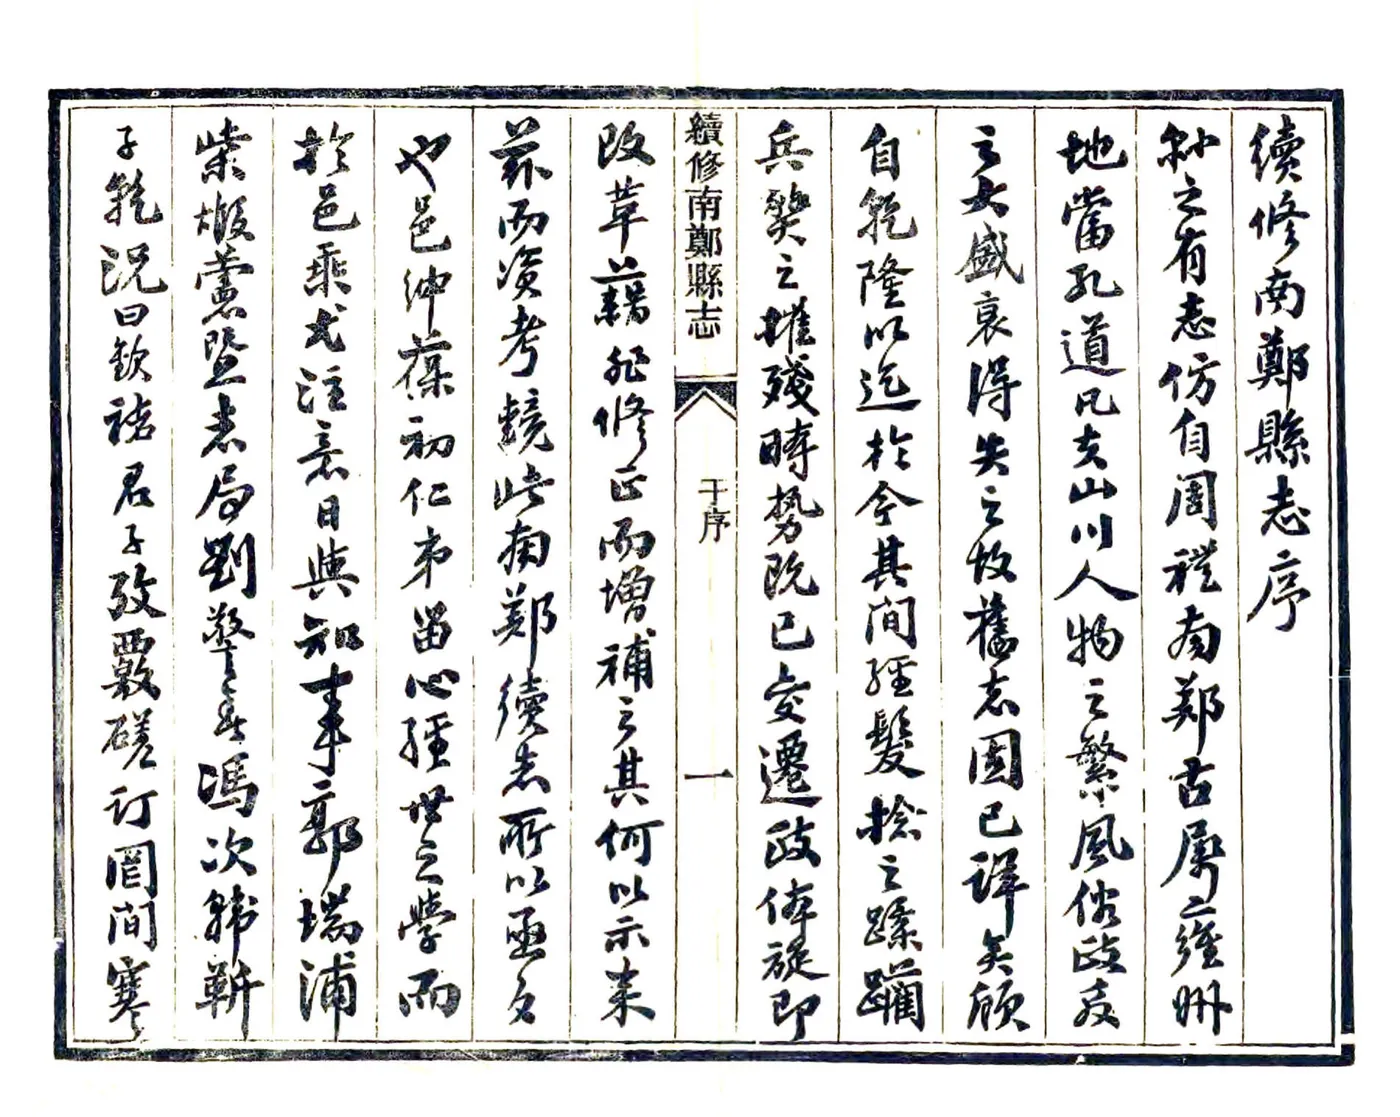 續修南鄭縣志序
州之有志仿自周禮南鄭古屬雍州
地當孔道凡夫山川人物之繁風俗政教
之大盛衰得失之故舊志固已詳矣顧
自乾隆以迄於今其間經髮捻之蹂躪
兵燹之摧殘時勢既已交遷政体旋即
續修南鄭縣志
王序
一
改革藉非修正而增補之其何以示來
茲而資考鏡此南鄭續志所以亟々
也邑紳葆初仁弟留心經世之學而
於邑乘尤注意日與知事郭瑞浦
柴煅薰暨志局劉馮次韓靳
子乾況曰欽諸君子攷覈磋訂罔間寒